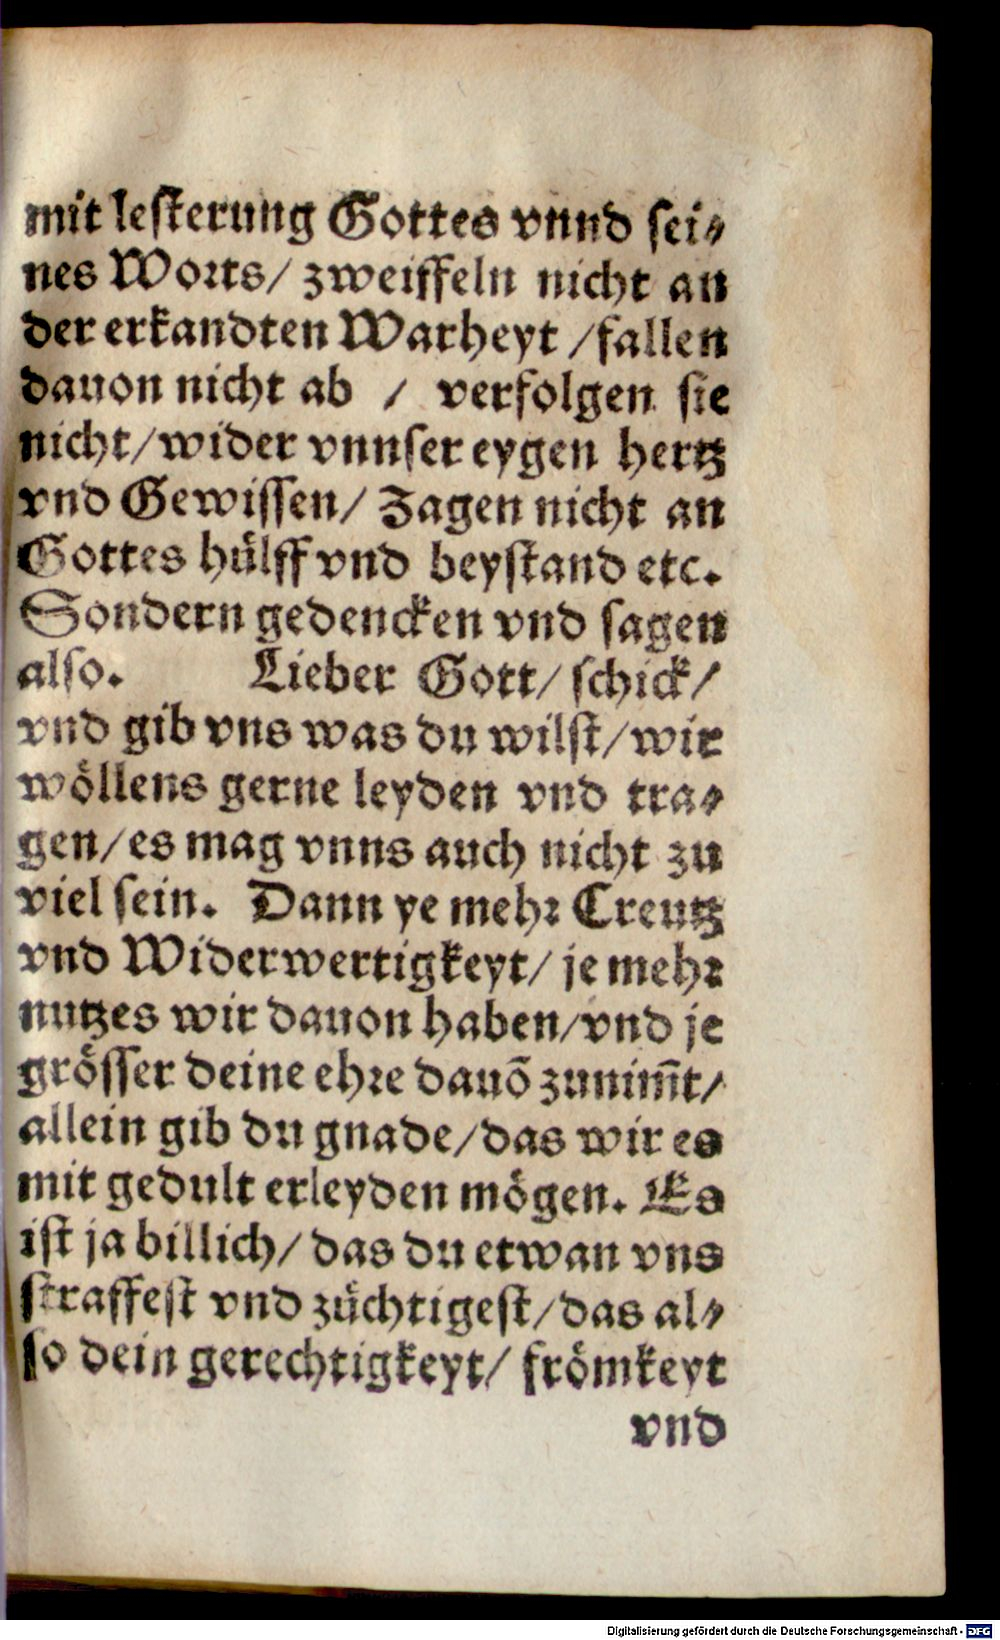 mit lesterung Gottes vnnd sei⸗
nes Worts/ zweiffeln nicht an
der erkandten Warheyt /fallen
dauon nicht ab / verfolgen sie
nicht/wider vnnser eygen hertz
vnd Gewissen/ Zagen nicht an
Gottes hülff vnd beystand etc.
Sondern gedencken vnd sagen
also. Lieber Gott/ schick/
vnd gib vns was du wilst/wir
wöllens gerne leyden vnd tra⸗
gen/es mag vnns auch nicht zu
viel sein. Dann ye mehr Creutz
vnd Widerwertigkeyt/ je mehr
nutzes wir dauon haben/vnd je
grösser deine ehre dauõ zunim̃t/
allein gib du gnade/das wir es
mit gedult erleyden mögen. Es
ist ja billich/das du etwan vns
straffest vnd züchtigest/das al⸗
so dein gerechtigkeyt/ frömkeyt
vnd
Digitalisierung gefördert durch die Deutsche Forschungsgemeinschaft - DFG